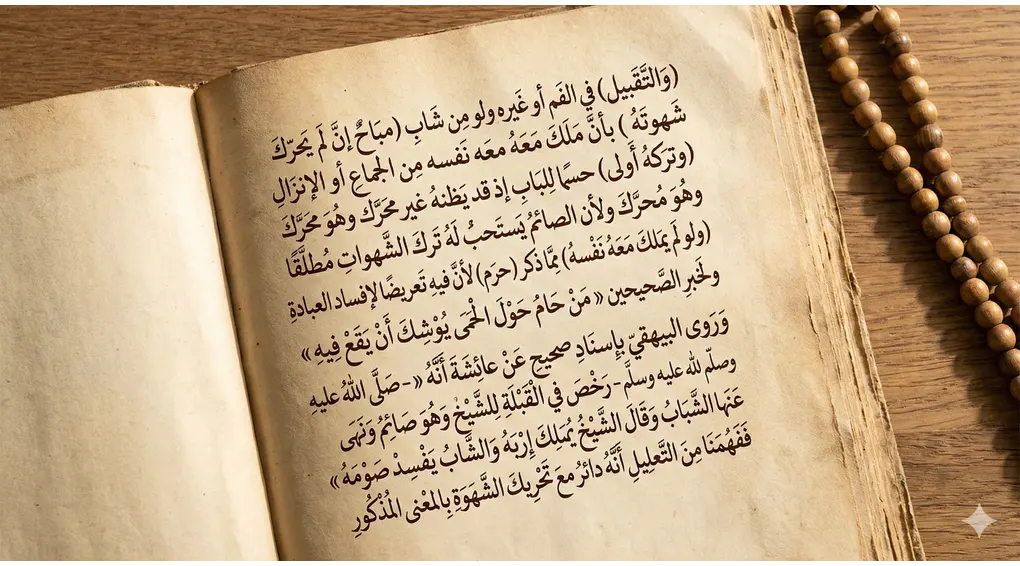 (وَالتَّقبيل) في الفَم أو غَيره ولو مِن شَابِ (مبَاحٌ إنَّ لَم يَحرّكَ
شَهوتَهُ ) بأنَّ مَلَكَ مَعَهُ معَه نَفسه مِن الجماعِ أو الإنزَالِ
(وتركهُ أَولى) حسمًا لِلبَابِ إذ قد يَظنهُ غير محَرَّك وهُوَ محَرَّكَ
وهُوَ مُحرَّكَ ولأن الصائمُ يَستَحبُ لَهُ تَركَ الشَّهواتِ مُطلَّقًا
(ولو لَم يَملَكَ مَعَهُ نَفْسهُ) ممَّا ذكر (حرَم) لأنَّ فيهِ تَعريضًا لإفساد العبادةِ
ولَخبرِ الصَّحيحين « مَنْ حَامُ حَوْلَ الْحَمَى يُوْشِكَ أَنْ يَقَعْ فِيهِ »
وَرَوى البيهقيّ بِإسنَادِ صحيحٍ عَنْ عائِشَةَ أَنَّهُ «-صَلَّى اللهُ عليهِ
وصلّم لله عليه وسلَّم- رَخْصَ في الْقَبْلَةِ لِلشَّيْخِ وَهُوَ صَائِمُ وَنَهَى
عَنْهَا الشَّبَابُ وَقَالَ الشَّيْخُ يُمَلِكَ إِرْبَهُ وَالشَّابُ يَفْسِدْ صَوْمَهُ »
فَفَهُمَنَا مِنَ التَّعلِيلِ أَنَّهُ دائرُ معَ تَحْرِيكَ الشَّهَوَةِ بِالمَعْنى المُذْكُورِ